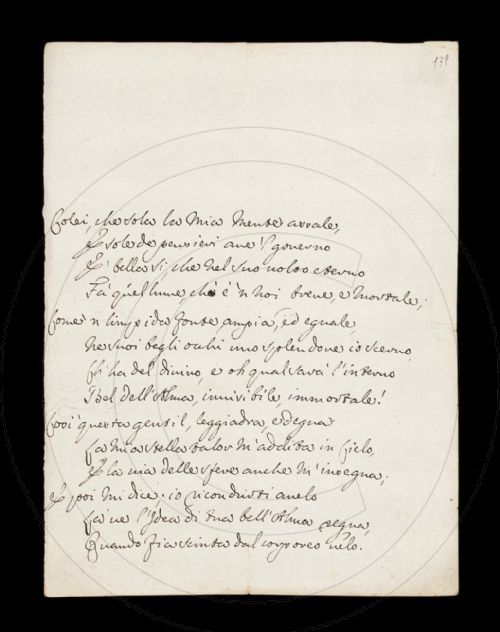 138
Colei, che sola la mia mente assale,
E sola de pensieri ave 'l governo
E' bella sì, che nel suo volto eterno
Fa quel lume ch' è 'n noi breve, e mortale;
Come 'n limpida fonte ampia, ed eguale
Ne suoi begli occhi uno splendore io scerno,
Ch' ha del divino, e oh qual sarà l'interno
Bel dell'Alma, invisibile, immortale!
Così questa gentil, leggiadra, e degna
La mia stella talor m'addita in Cielo,
E la via delle sfere anche m'insegna;
E poi mi dice: io ricondurti anelo
La 've l'Idea di tua bell'Alma regna,
Quando fia scinta dal corporeo velo.